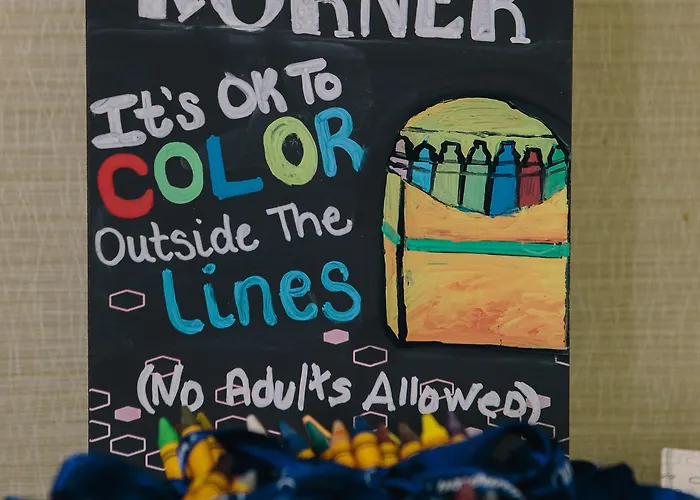 KORNER
It's OK To
COLOR
Outside The
Lines
(No Adults Allowed)